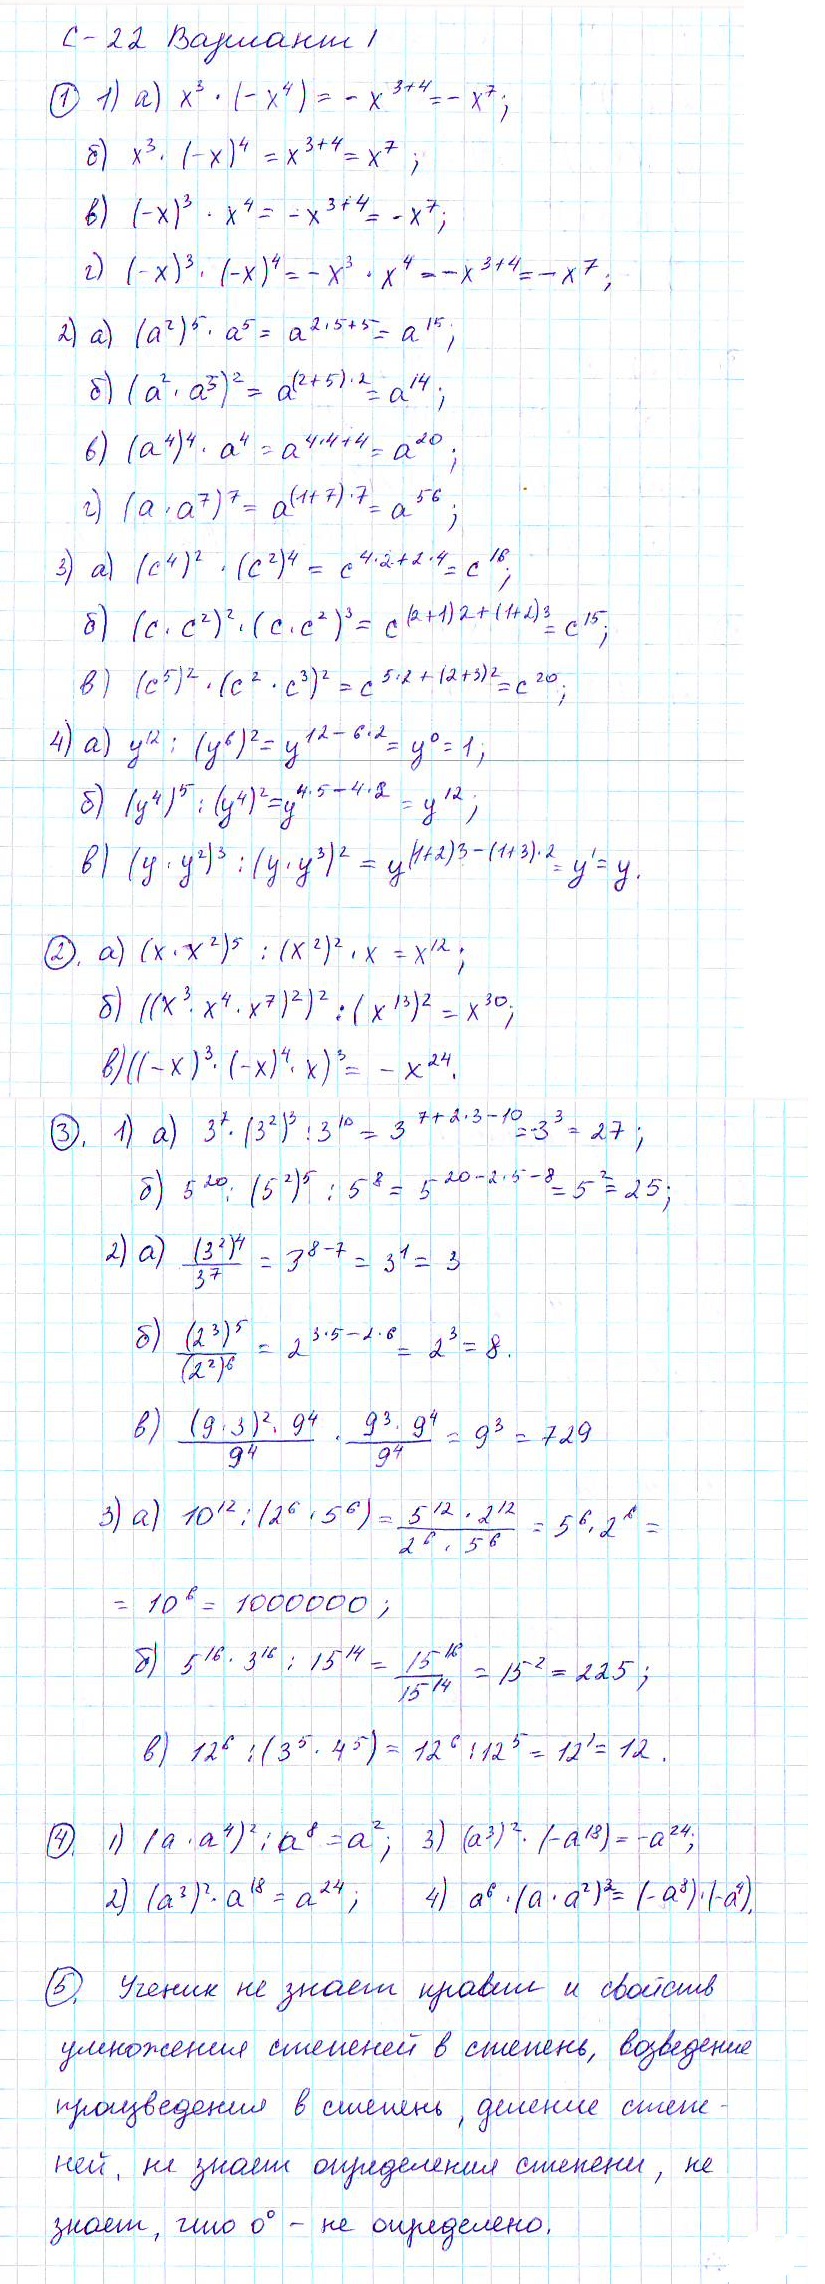 С-22 Вариант 1
① 1) а) x³ · (-x⁴) = -x³⁺⁴ = -x⁷;
б) x³ · (-x)⁴ = x³⁺⁴ = x⁷;
в) (-x)³ · x⁴ = -x³⁺⁴ = -x⁷;
г) (-x)³ · (-x)⁴ = -x³ · x⁴ = -x³⁺⁴ = -x⁷;
2) а) (a²)⁵ · a⁵ = a^(2·5+5) = a¹⁵;
б) (a² · a⁵)² = a^((2+5)·2) = a¹⁴;
в) (a⁴)⁴ · a⁴ = a^(4·4+4) = a²⁰;
г) (a · a⁷)⁷ = a^((1+7)·7) = a⁵⁶;
3) а) (c⁴)² · (c²)⁴ = c^(4·2+2·4) = c¹⁶;
б) (c · c²)² · (c · c²)³ = c^((2+1)2+(1+2)3) = c¹⁵;
в) (c⁵)² · (c² · c³)² = c^(5·2+(2+3)2) = c²⁰;
4) а) y¹² : (y⁶)² = y^(12-6·2) = y⁰ = 1;
б) (y⁴)⁵ : (y⁴)² = y^(4·5-4·2) = y¹²;
в) (y · y²)³ : (y · y³)² = y^((1+2)3-(1+3)·2) = y¹ = y.
②. а) (x · x²)⁵ : (x²)² · x = x¹²;
б) ((x³ · x⁴ · x⁷)²)² : (x¹³)² = x³⁰;
в) ((-x)³ · (-x)⁴ · x)³ = -x²⁴.
③. 1) а) 3⁷ · (3²)³ : 3¹⁰ = 3^(7+2·3-10) = 3³ = 27;
б) 5²⁰ : (5²)⁵ : 5⁸ = 5^(20-2·5-8) = 5² = 25;
2) а) (3²)⁴/3⁷ = 3⁸⁻⁷ = 3¹ = 3
б) (2³)⁵/(2²)⁶ = 2^(3·5-2·6) = 2³ = 8.
в) (9·3)² · 9⁴/9⁴ · 9³ · 9⁴/9⁴ = 9³ = 729
3) а) 10¹² : (2⁶ · 5⁶) = 5¹² · 2¹²/2⁶ · 5⁶ = 5⁶ · 2⁶ =
= 10⁶ = 1000000;
б) 5¹⁶ · 3¹⁶ : 15¹⁴ = 15¹⁶/15¹⁴ = 15² = 225;
в) 12⁶ : (3⁵ · 4⁵) = 12⁶ : 12⁵ = 12¹ = 12.
④. 1) (a · a⁴)² : a⁸ = a²; 3) (a³)² · (-a¹⁸) = -a²⁴;
2) (a³)² · a¹⁸ = a²⁴; 4) a⁶ · (a · a²)² = (-a⁸) · (-a⁴).
⑤. Ученик не знает правил и свойств
умножения степеней в степень, возведение
произведения в степень, деление степе-
ней, не знает определения степени, не
знает, что 0⁰ - не определено.